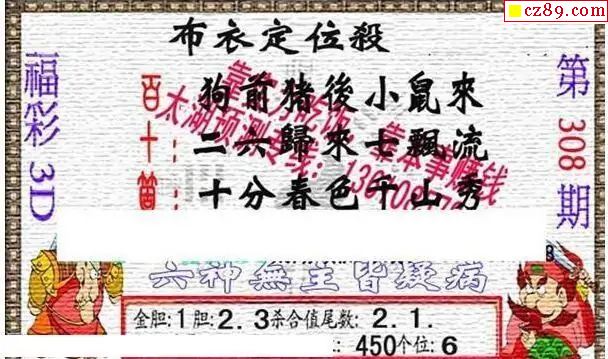 cz89.com
布衣定位殺
福彩3D
第308期
百 狗前猪後小鼠來
十: 二六歸來七飄流
十分春色千山秀
六神無主皆疑病
金胆:1胆:2.3杀合值尾数:2.1.
450个位:6